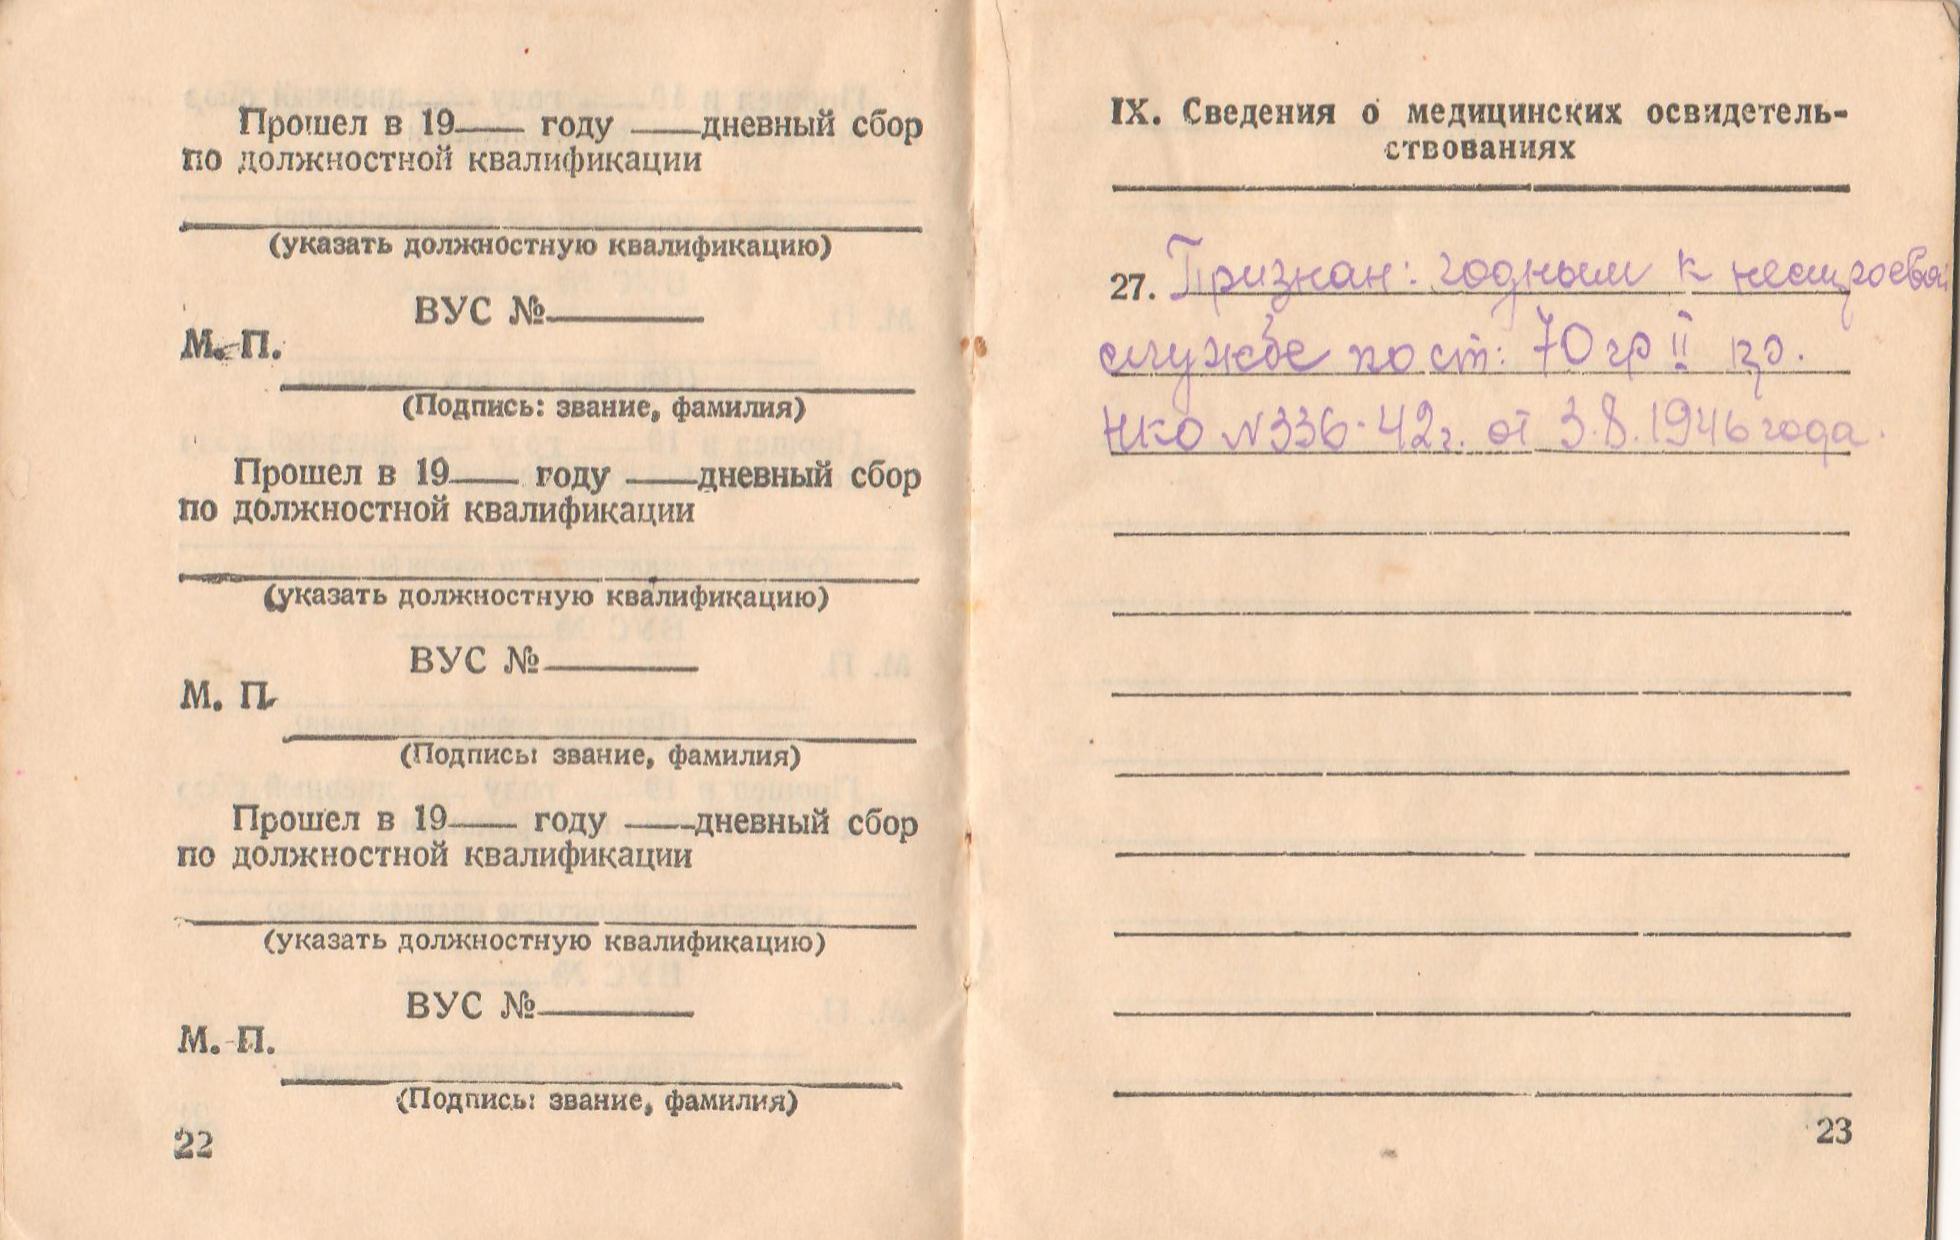 Прошел в 19___ году ___дневный сбор
по должностной квалификации
(указать должностную квалификацию)
ВУС №______
М. П.
(Подпись: звание, фамилия)
Прошел в 19___ году ___дневный сбор
по должностной квалификации
(указать должностную квалификацию)
ВУС №______
М. П.
(Подпись: звание, фамилия)
Прошел в 19___ году ___дневный сбор
по должностной квалификации
(указать должностную квалификацию)
ВУС №______
М. П.
(Подпись: звание, фамилия)
22
IX. Сведения о медицинских освидетель-
ствованиях
27. Признан: годным к нестроевой
службе по ст: 70 гр II
НКО №336-42г. от 3.8.1946 года.
23